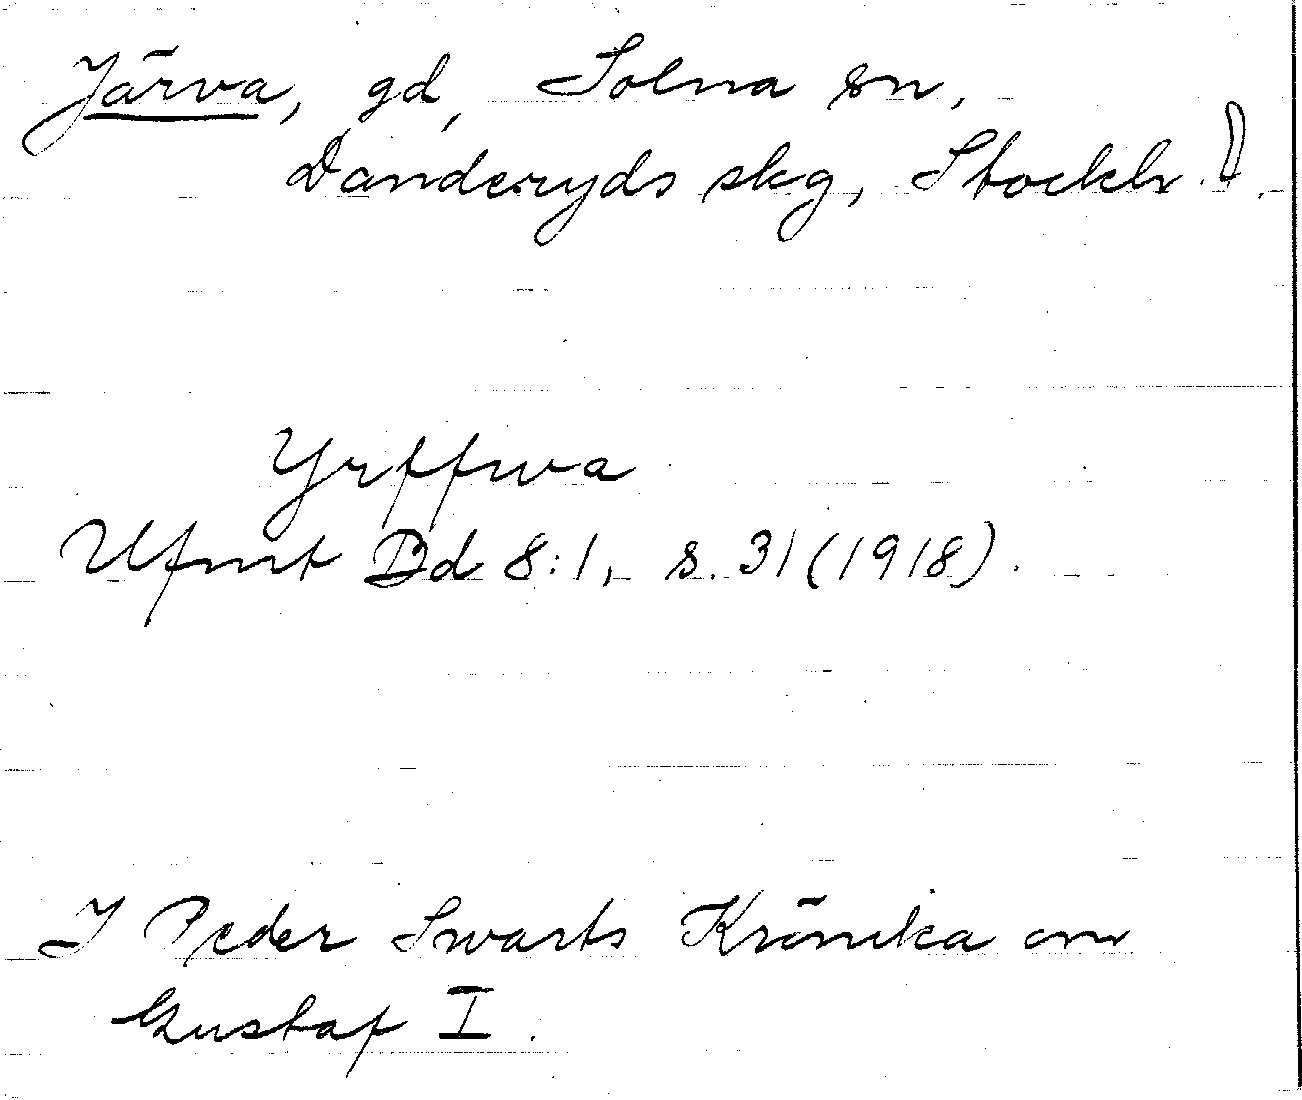 Järva, gd, Solna sn,
Danderyds skg, Stockh. l.
Yrffwa
Ufmt Bd 8:1, s. 31 (1918).
I Peder Swarts Krönika om
Gustaf I.